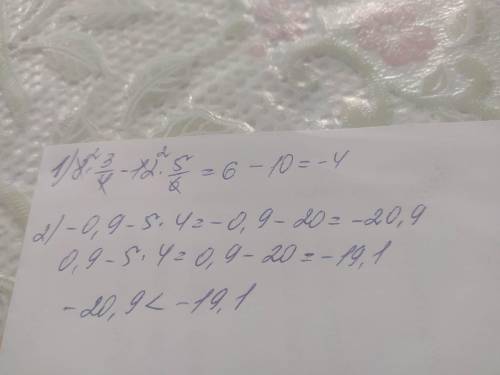 1) 8² · 3/4 - 12² · 5/6 = 6 - 10 = -4
2) -0,9 - 5 · 4 = -0,9 - 20 = -20,9
0,9 - 5 · 4 = 0,9 - 20 = -19,1
-20,9 < -19,1